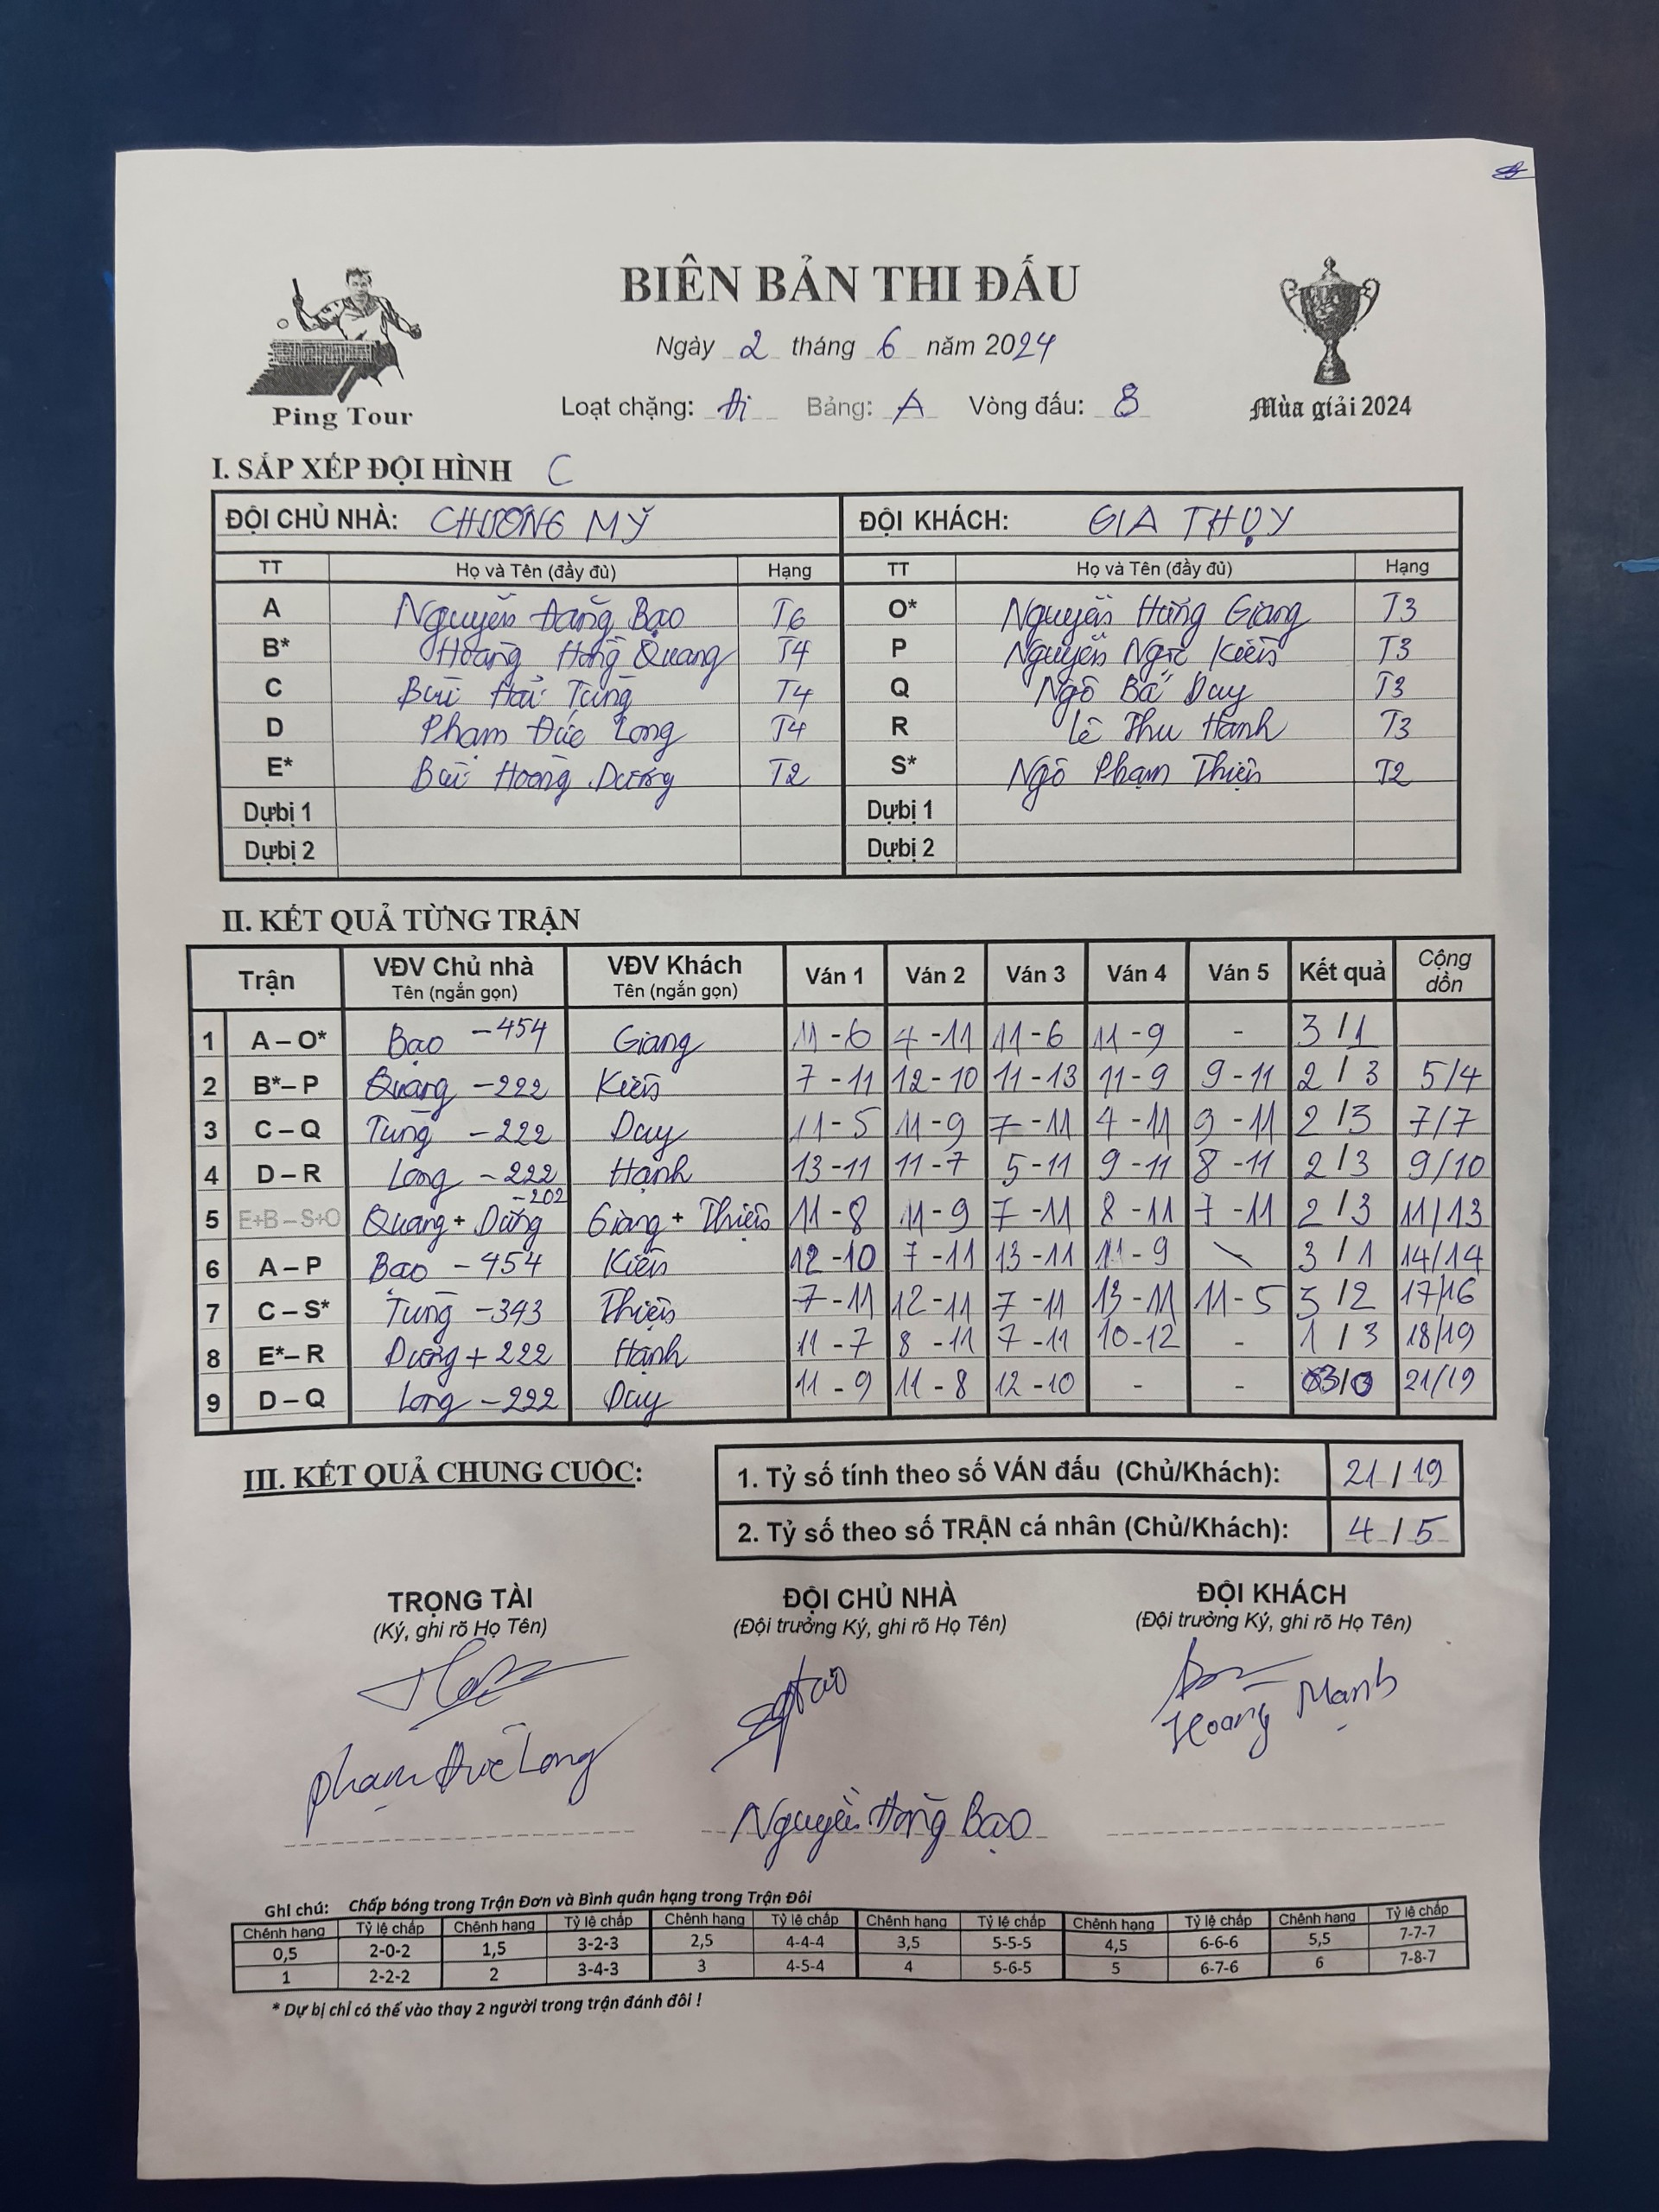 BIÊN BẢN THI ĐẤU
Ngày 2 tháng 6 năm 2024
Loạt chặng: đi Bảng: A Vòng đấu: 8
Ping Tour
Mùa giải 2024
I. SẮP XẾP ĐỘI HÌNH C
ĐỘI CHỦ NHÀ: CHƯƠNG MỸ ĐỘI KHÁCH: GIA THỤY
TT Họ và Tên (đầy đủ) Hạng TT Họ và Tên (đầy đủ) Hạng
A Nguyễn Đăng Bạo T6 O* Nguyễn Hưng Giang T3
B* Hoàng Hồng Quang T4 P Nguyễn Ngọc Kiên T3
C Bùi Hải Tùng T4 Q Ngô Bá Day T3
D Phạm Đức Long T4 R Lê Thu Hạnh T3
E* Bùi Hoàng Dương T2 S* Ngô Phạm Thiện T2
Dự bị 1 Dự bị 1
Dự bị 2 Dự bị 2
II. KẾT QUẢ TỪNG TRẬN
Trận VĐV Chủ nhà Tên (ngắn gọn) VĐV Khách Tên (ngắn gọn) Ván 1 Ván 2 Ván 3 Ván 4 Ván 5 Kết quả Cộng dồn
1 A – O* Bạo -454 Giang 11 - 6 4 - 11 11 - 6 11 - 9 - 3 / 1
2 B* – P Quang -222 Kiên 7 - 11 12 - 10 11 - 13 11 - 9 9 - 11 2 / 3 5/4
3 C – Q Tùng -222 Day 11 - 5 11 - 9 7 - 11 4 - 11 9 - 11 2 / 3 7/7
4 D – R Long -222 Hạnh 13 - 11 11 - 7 5 - 11 9 - 11 8 - 11 2 / 3 9/10
5 E+B – S+O Quang + Dương -202 Giang + Thiện 11 - 8 11 - 9 7 - 11 8 - 11 7 - 11 2 / 3 11/13
6 A – P Bạo -454 Kiên 12 - 10 7 - 11 13 - 11 11 - 9 \ 3 / 1 14/14
7 C – S* Tùng -343 Thiện 7 - 11 12 - 11 7 - 11 13 - 11 11 - 5 3 / 2 17/16
8 E* – R Dương +222 Hạnh 11 - 7 8 - 11 7 - 11 10 - 12 - 1 / 3 18/19
9 D – Q Long -222 Day 11 - 9 11 - 8 12 - 10 - - 3 / 0 21/19
III. KẾT QUẢ CHUNG CUỘC:
1. Tỷ số tính theo số VÁN đấu (Chủ/Khách): 21 / 19
2. Tỷ số theo số TRẬN cá nhân (Chủ/Khách): 4 / 5
TRỌNG TÀI ĐỘI CHỦ NHÀ ĐỘI KHÁCH
(Ký, ghi rõ Họ Tên) (Đội trưởng Ký, ghi rõ Họ Tên) (Đội trưởng Ký, ghi rõ Họ Tên)
Hoàng Mạnh
Phạm Đức Long
Nguyễn Đăng Bạo
Ghi chú: Chấp bóng trong Trận Đơn và Bình quân hạng trong Trận Đôi
Chênh hạng Tỷ lệ chấp Chênh hạng Tỷ lệ chấp Chênh hạng Tỷ lệ chấp Chênh hạng Tỷ lệ chấp Chênh hạng Tỷ lệ chấp Chênh hạng Tỷ lệ chấp
0,5 2-0-2 1,5 3-2-3 2,5 4-4-4 3,5 5-5-5 4,5 6-6-6 5,5 7-7-7
1 2-2-2 2 3-4-3 3 4-5-4 4 5-6-5 5 6-7-6 6 7-8-7
* Dự bị chỉ có thể vào thay 2 người trong trận đánh đôi !